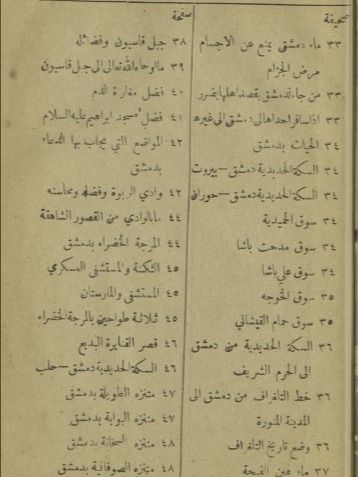 صحيفة
٣٣ ماء دمشق يمنع عن الاجسام
مرض الجزام
٣٣ من جاء لدمشق بقصد اهلها بضرر
٣٣ اذا سافر احد اهالى دمشق الى غيرها
٣٤ الحيات بدمشق
٣٤ السكة الحديدية دمشق — بيروت
٣٤ السكة الحديدية دمشق — حوران
٣٤ سوق الحميدية
٣٤ سوق مدحت باشا
٣٤ سوق علي باشا
٣٥ سوق الخوجه
٣٥ سوق حمام القيشاني
٣٦ السكة الحديدية من دمشق
الى الحرم الشريف
٣٦ خط التلغراف من دمشق الى
المدينة المنورة
٣٦ وضع تاريخ التلغراف
٣٧ ماء عين الفيجة
صفحة
٣٨ جبل قاسيون وفضائله
٣٩ ما اوحاه الله تعالى الى جبل قاسيون
٤٠ فضل مغارة الدم
٤١ فضل مسجد ابراهيم عليه السلام
٤١ المواضع التي يجاب بها الدعاء
بدمشق
٤٢ وادي الربوة وفضله ومحاسنه
٤٤ ما بالوادي من القصور الشاهقة
٤٤ المرجة الخضراء بدمشق
٤٥ الثكنة والمستشفى العسكري
٤٥ المستشفى والمارستان
٤٥ ثلاثة طواحين بالمرجة الخضراء
٤٦ قصر القنايرة البديع
٤٦ السكة الحديدية دمشق — حلب
٤٧ متنزه الطويلة بدمشق
٤٧ متنزه البوابة بدمشق
٤٨ متنزه السخانة بدمشق
٤٨ متنزه الصوفانية بدمشق